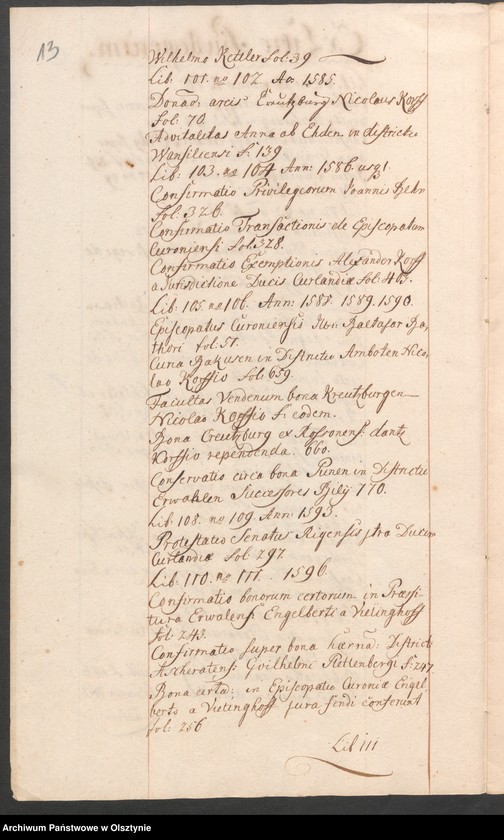 13
Wilhelmo Kettler Fol: 39
Lib. 101. no 102. Ao. 1585.
Donao: arcis Creutzburg Nicolaus Korff
Fol: 70.
Advitalitas Anna ab Ehden. in districtu
Wansiliensi F. 139
Lib: 103. no 104 Ann: 1586.
Confirmatio Privilegiorum Joannis Behr
Fol: 326.
Confirmatio Transactionis de Episcopatum
Curoniensi Fol: 328.
Confirmatio Exemptionis Alexander Korff
a Jurisdictione Ducis Curlandiæ Fol: 403.
Lib: 105. no 106. Ann: 1588. 1589. 1590.
Episcopatus Curoniensis Baltasar Ba,
thori fol: 51.
Curia Bakusen in Districtu Amboten Nico,
lao Korffio Fol: 659.
Facultas Vendendum bona Kreutzburgen
Nicolao Korffio F: eodem.
Bona Creutzburg ex Rossonens: dant
Korffio rependenda. 660.
Conservatio circa bona Punen in Districtu
Erwahlen Successores Bilij 770.
Lib: 108. no 109. Ann: 1593.
Protestatio Senatus Rigensis ctra Ducem
Curlandiæ Fol 297.
Lib: 110. no 111. 1596.
Confirmatio bonorum certorum in Præfe-
tura Erwalensi Engelberti a Vietinghoff
fol: 243.
Confirmatio super bona District:
Ascheratens: Gvilhelmi Plettenbergi F: 247
Bona certa: in Episcopatu Curoniæ Engel
berto a Vietinghoff jura feudi conferunt
Fol: 256
Lib 111
Archiwum Państwowe w Olsztynie